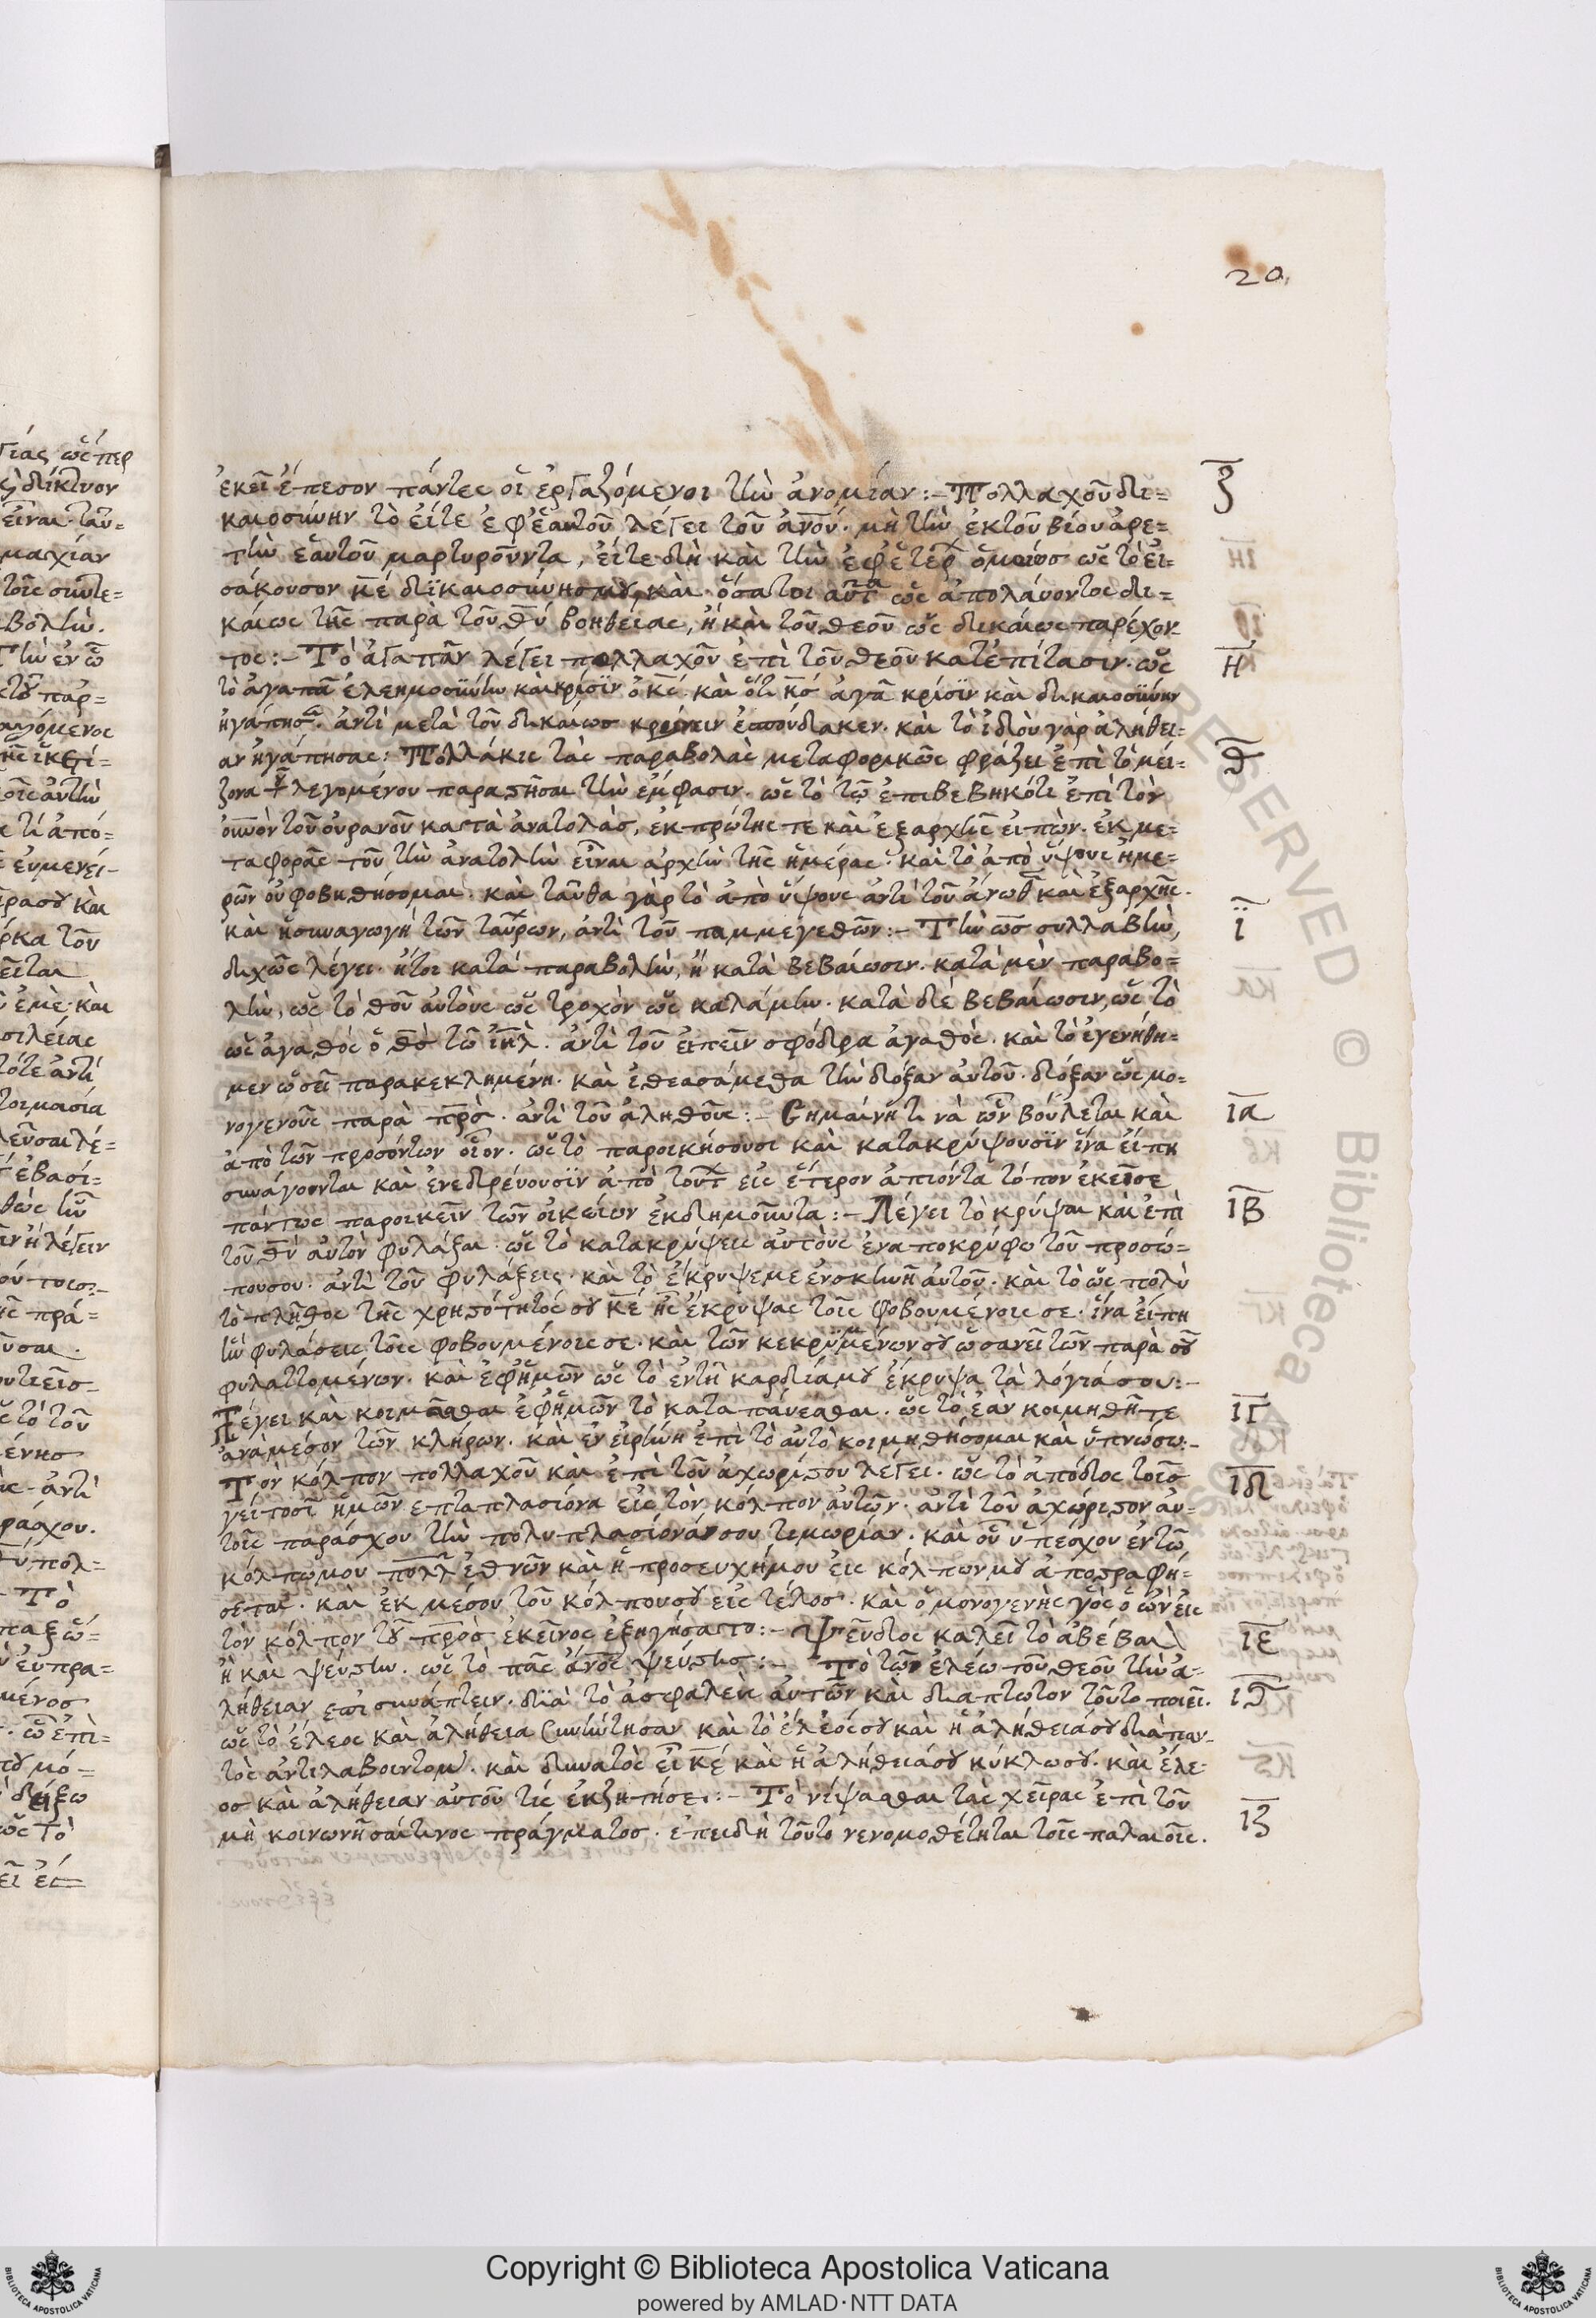 20,
ἐκεῖ ἔπεσον πάντες οἱ ἐργαζόμενοι τὴν ἀνομίαν :– Πολλαχοῦ δι= ζ
καιοσύνην τὸ εἴτε ἐφ' ἑαυτοῦ λέγει τοῦ ἀνοῦ. μὴ τὴν ἐκ τοῦ βίου ἀρε=
τὴν ἑαυτοῦ μαρτυροῦντα, εἴτε δὴ καὶ τὴν ἐφ' ἑτέρ ὁμοίως ὡς τὸ εἰ=
σάκουσον κε δϊκαιοσύνης μου καὶ ὅσα τοιαῦτα ὡς ἀπολάυοντος δι=
καίως τῆς παρὰ τοῦ θυ βοηθείας, ἢ καὶ τοῦ θεοῦ ὡς δικαίως παρέχον
τος :– Τὸ ἀγαπᾶν λέγει πολλαχοῦ ἐπὶ τοῦ θεοῦ κατ' ἐπίτασιν. ὡς η
τὸ ἀγαπᾶ ἐλεημοσύνην καὶ κρίσϊν ὁ κς. καὶ ὅτι κς ἀγαπᾶ κρίσϊν καὶ δικαιοσύνην
ἠγάπησ. ἀντὶ μετὰ τοῦ δικαίως κρίνειν ἐσπούδακεν. καὶ τὸ ἰδοὺ γὰρ ἀλήθει=
αν ἠγάπησας: Πολλάκις τὰς παραβολὰς μεταφορικῶς φράζει ἐπὶ τὸ μεί= θ
ζονα τ λεγομένου παραστῆσαι τὴν ἔμφασιν. ὡς τὸ τῶ ἐπιβεβηκότι ἐπὶ τὸν
οὐνὸν τοῦ οὐρανοῦ κατὰ ἀνατολάς, ἐκ πρώτης τε καὶ ἐξ ἀρχῆς εἰπὼν. ἐκ με=
ταφορᾶς τοῦ τὴν ἀνατολὴν εἶναι ἀρχὴν τῆς ἡμέρας. καὶ τὸ ἀπὸ ὕψους ἡμε=
ρῶν οὐ φοβηθήσομαι. κἀνταῦθα γὰρ τὸ ἀπὸ ὕψους ἀντὶ τοῦ ἄνωθ καὶ ἐξ ἀρχῆς.
καὶ ἡ συναγωγὴ τῶν ταύρων, ἀντὶ τοῦ παμμεγεθῶν :– Τὴν ὡς συλλαβὴν, ϊ
διχῶς λέγει. ἤτοι κατὰ παραβολὴν, ἢ κατὰ βεβαίωσιν. κατὰ μὲν παραβο=
λὴν, ὡς τὸ θοῦ αὐτοὺς ὡς τροχὸν ὡς καλάμην. κατὰ δὲ βεβαίωσιν, ὡς τὸ
ὡς ἀγαθὸς ὁ θς τῶ ιηλ. ἀντὶ τοῦ εἰπεῖν σφόδρα ἀγαθὸς. καὶ τὸ ἐγενήθη=
μεν ὡσεὶ παρακεκλημένη. καὶ ἐθεασάμεθα τὴν δόξαν αὐτοῦ. δόξαν ὡς μο=
νογενοῦς παρὰ πρς. ἀντὶ τοῦ ἀληθοῦς :– Σημαίνη τινὰ ὧν βούλεται καὶ ια
ἀπὸ τῶν προσόντων οἷον. ὡς τὸ παροικήσουσι καὶ κατακρύψουσϊν ἵνα εἴπη
συνάγονται καὶ ἐνεδρεύουσϊν ἀπὸ τοῦτ εἰς ἕτερον ἀπιόντα τόπον ἐκεῖσε
πάντως παροικεῖν τῶν οἰκείων ἐκδημοῦντα :– Λέγει τὸ κρύψαι καὶ ἐπὶ ιβ
τοῦ θυ αὐτὸν φυλάξαι. ὡς τὸ κατακρύψεις αὐτοὺς ἐν ἀποκρύφω τοῦ προσώ=
που σου. ἀντὶ τοῦ φυλάξεις. καὶ τὸ ἔκρυψε με ἐν σκηνῆ αὐτοῦ. καὶ τὸ ὡς πολὺ
τὸ πλῆθος τῆς χρηστότητός σου κε ἧς ἔκρυψας τοῖς φοβουμένοις σε. ἵνα εἴπη
ἣν φυλάσεις τοῖς φοβουμένοις σε. καὶ τῶν κεκρυμμένων σου ὡσανεὶ τῶν παρὰ σοῦ
φυλαττομένων. καὶ ἐφ' ἡμῶν ὡς τὸ ἐν τῆ καρδία μου ἔκρυψα τὰ λόγιά σου :–
Λέγει καὶ κοιμᾶσθαι ἐφ' ἡμῶν τὸ καταπάυεσθαι. ὡς τὸ ἐὰν κοιμηθῆτε ιγ
ἀνάμέσον τῶν κλήρων. καὶ ἐν εἰρήνη ἐπὶ τὸ αὐτὸ κοιμηθήσομαι καὶ ὑπνώσω :–
Τὸν κόλπον πολλαχοῦ καὶ ἐπὶ τοῦ ἀχωρίστου λέγει. ὡς τὸ ἀπόδος τοῖς ιδ
γείτοσϊ ἡμῶν ἑπταπλασίονα εἰς τὸν κόλπον αὐτῶν. ἀντὶ τοῦ ἀχώριστον αὐ=
τοῖς παράσχου τὴν πολυπλασίονάν σου τιμωρίαν. καὶ οὗ ὑπέσχον ἐν τῶ
κόλπω μου πολλ ἐθνῶν καὶ ἡ προσευχή μου εἰς κόλπων μου ἀποστραφή=
σεται. καὶ ἐκ μέσου τοῦ κόλπου σου εἰς τέλος. καὶ ὁ μονογενὴς υἱὸς ὁ ὢν εἰς
τὸν κόλπον τοῦ πρρς ἐκεῖνος ἐξηγήσατο :– Ψεῦδος καλεῖ τὸ ἀβέβαι ιε
ἢ καὶ ψεύστην. ὡς τὸ πᾶς ἄνος ψεύστης :– Τὸ τῶν ἐλέω τοῦ θεοῦ τὴν ἀ=
λήθειαν ἐπισυνάπτειν. διὰ τὸ ἀσφαλὲς αὐτῶν καὶ διάπτωτον τοῦτο ποιεῖ. ιϛ
ὡς τὸ ἔλεος καὶ ἀλήθεια συνήντησαν καὶ τὸ ἔλεός σου καὶ ἡ ἀλήθειά σου διὰ παν
τὸς ἀντιλάβοιντό μου. καὶ δυνατὸς εἶ κε καὶ ἡ ἀλήθειά σου κύκλω σου. καὶ ἔλε=
ος καὶ ἀλήθειαν αὐτοῦ τίς ἐκζητήσει :– Τὸ νίψασθαι τὰς χεῖρας ἐπὶ τοῦ ιζ
μὴ κοινωνῆσαί τινος πράγματος. ἐπειδὴ τοῦτο νενομοθέτηται τοῖς παλαιοῖς.
Copyright © Biblioteca Apostolica Vaticana
powered by AMLAD·NTT DATA